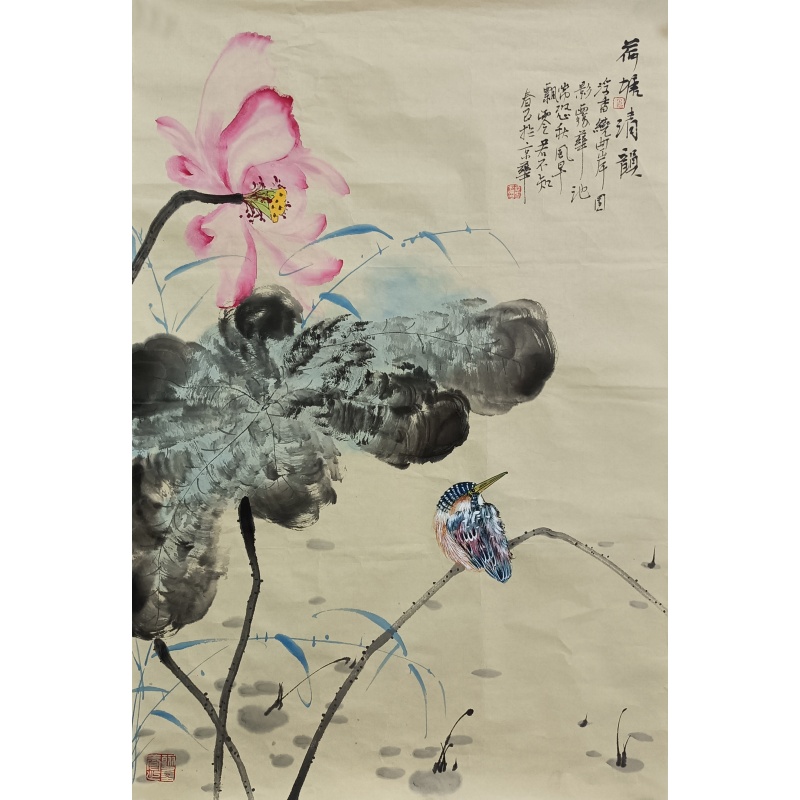 荷塘清韻
浮香繞曲岸圓
影覆華池
常恐秋風早
飄零君不知
春於京華